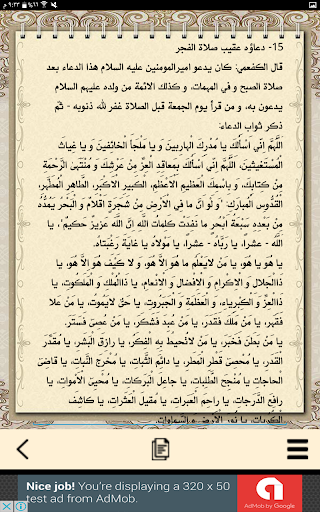 م ٩:٢٢ ١٦%
15- دعاؤه عقيب صلاة الفجر
قال الكفعمي: كان يدعو اميرالمومنين عليه السلام هذا الدعاء بعد
صلاة الصبح و في المهمات، و كذلك الائمة من ولده عليهم السلام
يدعون به، و من قرأ يوم الجمعة قبل الصلاة غفر لله ذنوبه - ثم
ذكر ثواب الدعاء:
اللَّهُمَّ اِني اَسأَلُكَ يا مُدرِكَ الهارِبينَ وَ يا مَلجَأَ الخائفينَ وَ يا غِياثَ
المُستَغيثينَ، اللَّهُمَّ اِني اَسأَلُكَ بِمَعاقِدِ العِزِّ مِن عَرشِكَ وَ مُنتَهَى الرَّحمَةِ
مِن كِتابِكَ، وَ بِاسمِكَ العَظيمِ الاَعظَمِ، الكَبيرِ الاَكبَرِ، الطاهِرِ المُطَهَّرِ،
القُدُّوسِ المُبارَكِ، "وَ لَو اَنَّ ما فِي الاَرضِ مِن شَجَرَةٍ اَقلامٌ وَ البَحرُ يَمُدُّهُ
مِن بَعدِهِ سَبعَةُ اَبحُرٍ ما نَفِدَت كَلِماتُ اللَّهِ اِنَّ اللَّهَ عَزيزٌ حَكيمٌ"، يا
اللَّهُ - عشرا، يا رَبَّاهُ - عشرا، يا مَولاهُ يا غايَةَ رَغبَتاهُ.
يا هُوَ يا هُوَ، يا مَن لايَعلَمُ ما هُوَ اِلَّا هُوَ، وَ لا كَيفَ هُوَ اِلَّا هُوَ، يا
ذَاالجَلالِ وَ الاِكرامِ وَ الاِفضالِ وَ الاِنعامِ، يا ذَاالمُلكِ وَ المَلَكُوتِ، يا
ذَاالعِزِّ وَ الكِبرِياءِ، وَ العَظَمَةِ وَ الجَبَرُوتِ، يا حَيُّ لايَمُوتُ، يا مَن عَلا
فَقَهَرَ، يا مَن مَلَكَ فَقَدَرَ، يا مَن عُبِدَ فَشَكَرَ، يا مَن عُصِيَ فَسَتَرَ.
يا مَن بَطَنَ فَخَبَرَ، يا مَن لاتُحيطُ بِهِ الفِكَرُ، يا رازِقَ البَشَرِ، يا مُقَدِّرَ
القَدَرِ، يا مُحصِيَ قَطرِ المَطَرِ، يا دائِمَ الثَّباتِ، يا مُخرِجَ النَّباتِ، يا قاضِيَ
الحاجاتِ يا مُنجِحَ الطَّلِباتِ، يا جاعِلَ البَرَكاتِ، يا مُحيِيَ الاَمواتِ، يا
رافِعَ الدَّرَجاتِ، يا راحِمَ العَبَراتِ، يا مُقيلَ العَثَراتِ، يا كاشِفَ
الكُرُباتِ، يا نُورَ الاَرضِ وَ السَّماواتِ.
Nice job! You're displaying a 320 x 50
test ad from AdMob.
AdMob by Google